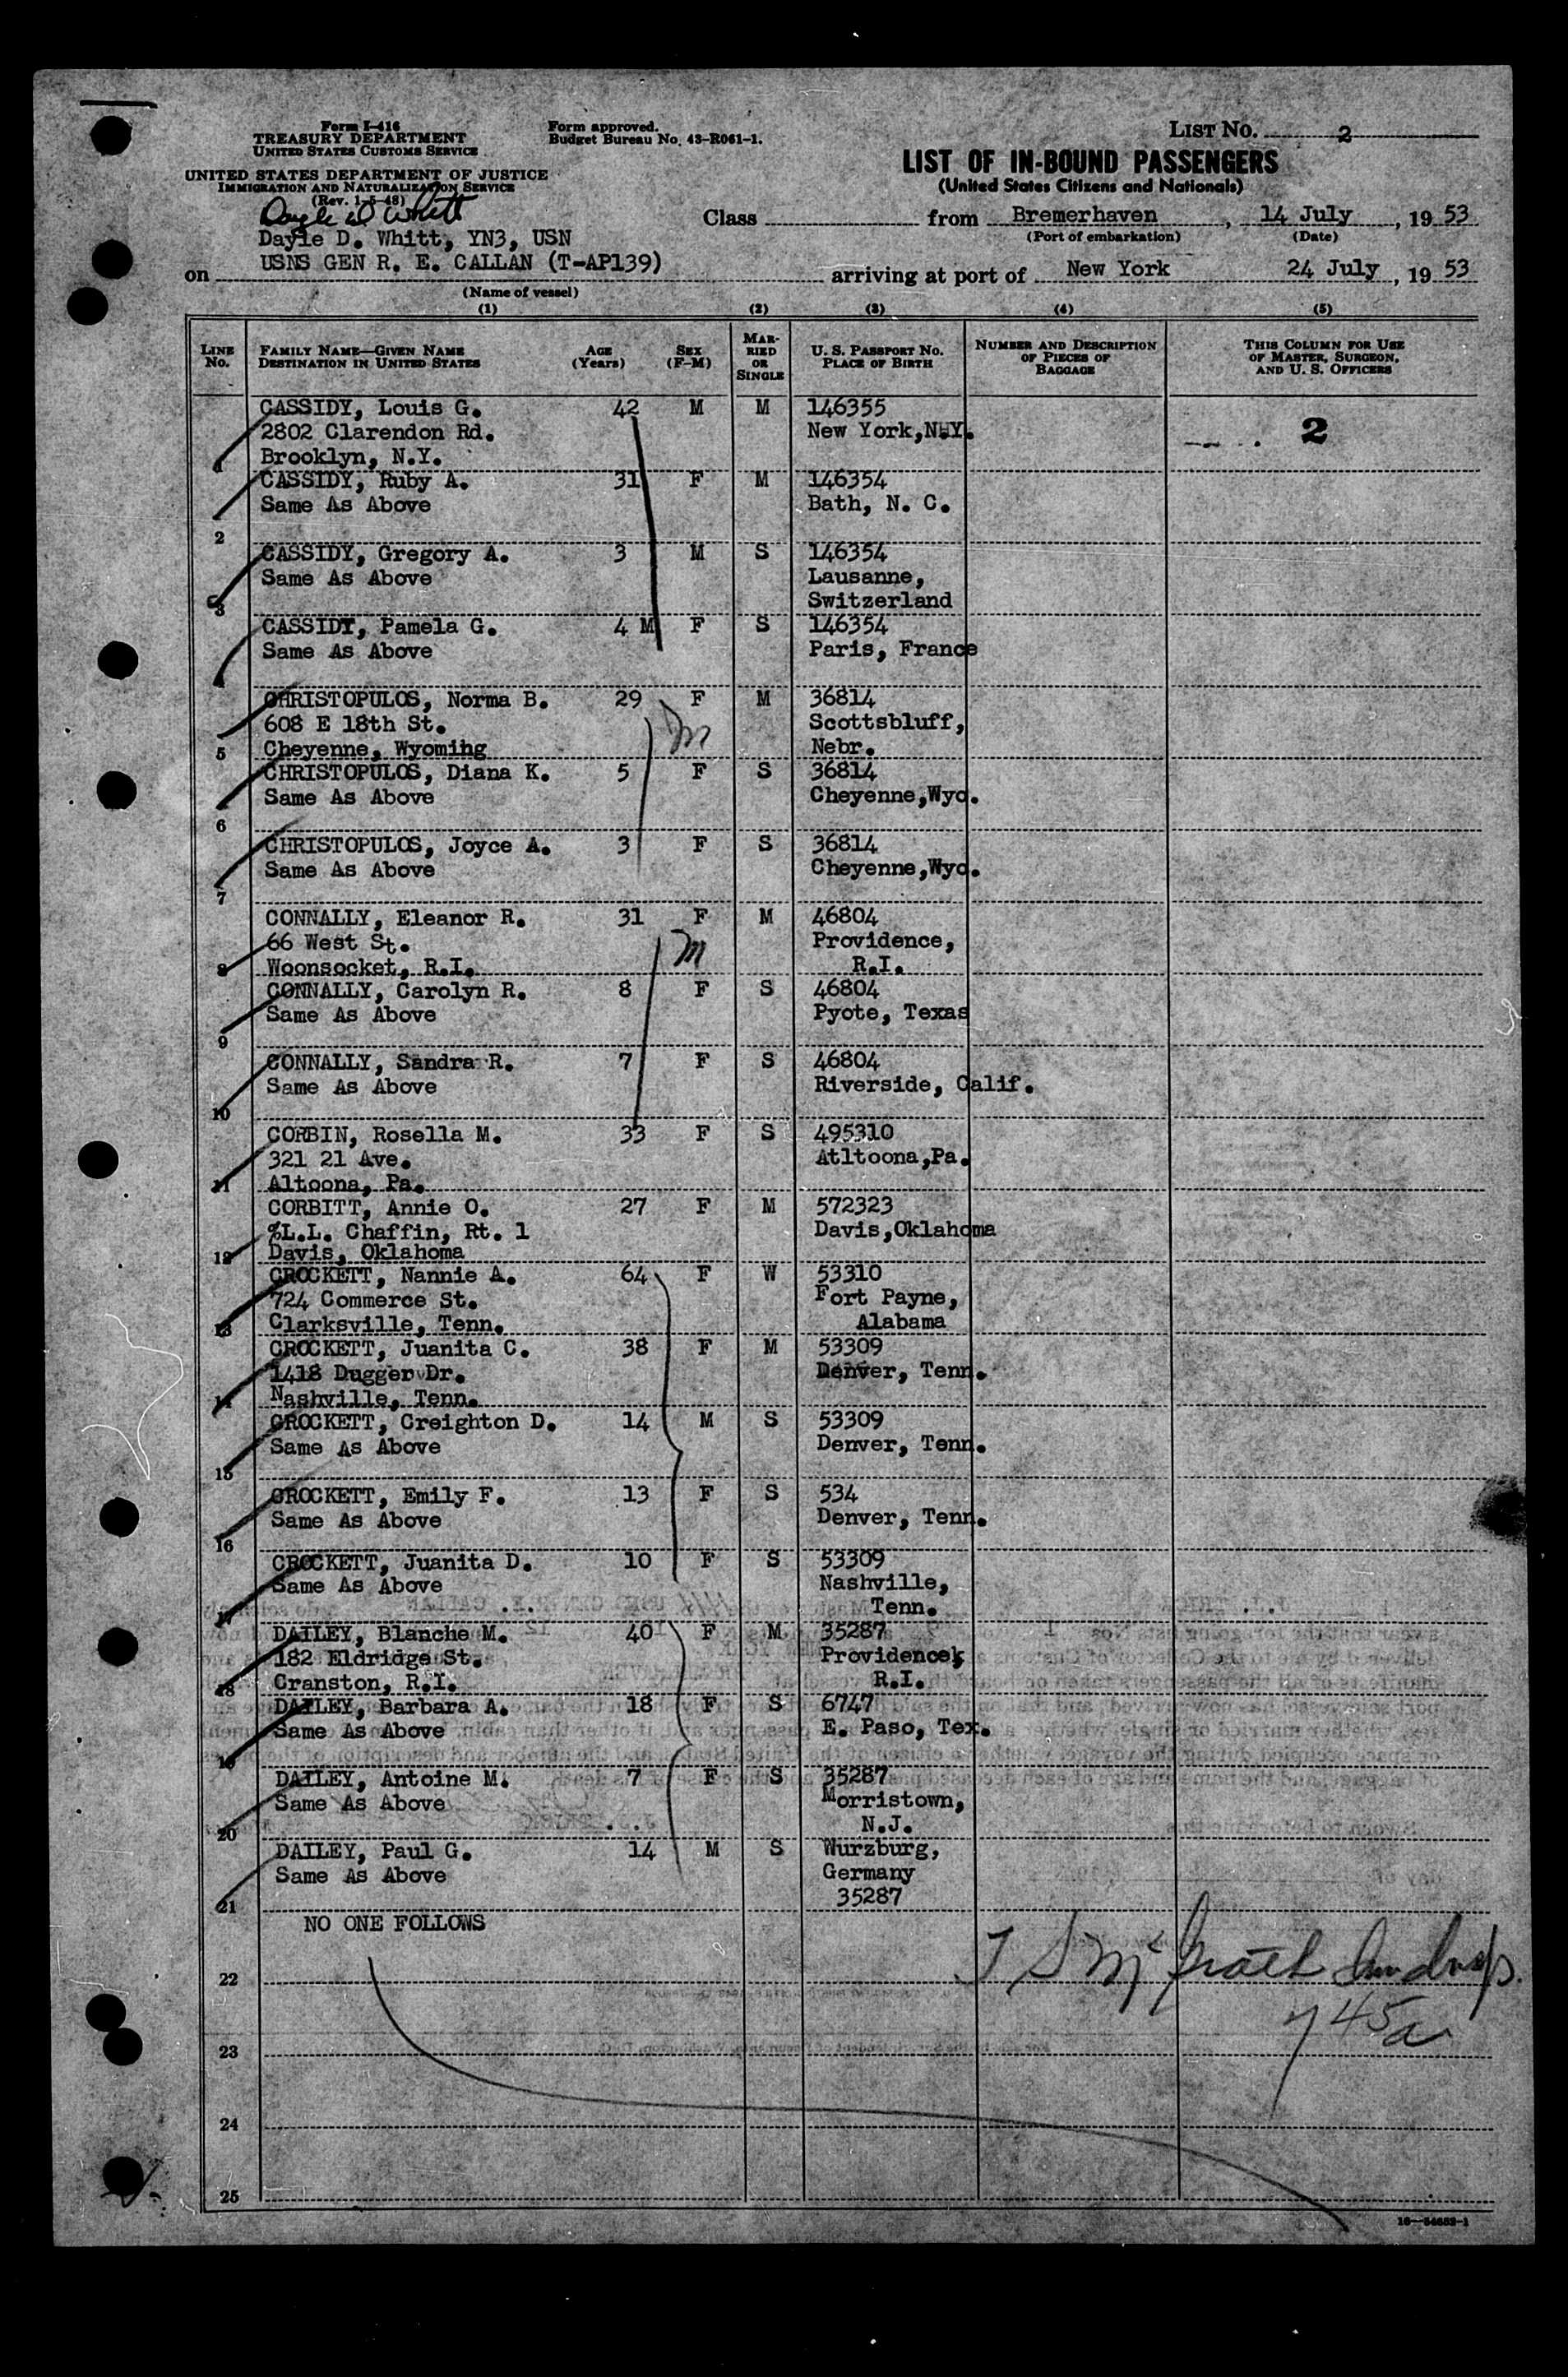 Form I-416
TREASURY DEPARTMENT
UNITED STATES CUSTOMS SERVICE
UNITED STATES DEPARTMENT OF JUSTICE
IMMIGRATION AND NATURALIZATION SERVICE
(Rev. 1-5-48)
Form approved.
Budget Bureau No. 43-R061-1.
LIST NO. 2
LIST OF IN-BOUND PASSENGERS
(United States Citizens and Nationals)
Dayle D Whitt
Dayle D. Whitt, YN3, USN
Class from Bremerhaven, 14 July, 19 53
(Port of embarkation) (Date)
on USNS GEN R. E. CALLAN (T-AP139) arriving at port of New York 24 July, 19 53
(Name of vessel)
(1) (2) (3) (4) (5)
LINE NO. FAMILY NAME—GIVEN NAME DESTINATION IN UNITED STATES AGE (Years) SEX (F-M) MARRIED OR SINGLE U. S. PASSPORT NO. PLACE OF BIRTH NUMBER AND DESCRIPTION OF PIECES OF BAGGAGE THIS COLUMN FOR USE OF MASTER, SURGEON, AND U. S. OFFICERS
CASSIDY, Louis G. 42 M M 146355
2802 Clarendon Rd. New York, N.Y. 2
1 Brooklyn, N.Y.
CASSIDY, Ruby A. 31 F M 146354
Same As Above Bath, N. C.
2
CASSIDY, Gregory A. 3 M S 146354
Same As Above Lausanne,
3 Switzerland
CASSIDY, Pamela G. 4 M F S 146354
Same As Above Paris, France
4
CHRISTOPULOS, Norma B. 29 F M 36814
608 E 18th St. M Scottsbluff,
5 Cheyenne, Wyoming Nebr.
CHRISTOPULOS, Diana K. 5 F S 36814
Same As Above Cheyenne,Wyo.
6
CHRISTOPULOS, Joyce A. 3 F S 36814
Same As Above Cheyenne,Wyo.
7
CONNALLY, Eleanor R. 31 F M 46804
66 West St. M Providence,
8 Woonsocket, R.I. R.I.
CONNALLY, Carolyn R. 8 F S 46804
Same As Above Pyote, Texas
9
CONNALLY, Sandra R. 7 F S 46804
Same As Above Riverside, Calif.
10
CORBIN, Rosella M. 33 F S 495310
321 21 Ave. Atltoona,Pa.
11 Altoona, Pa.
CORBITT, Annie O. 27 F M 572323
%L.L. Chaffin, Rt. 1 Davis,Oklahoma
12 Davis, Oklahoma
CROCKETT, Nannie A. 64 F W 53310
724 Commerce St. Fort Payne,
13 Clarksville, Tenn. Alabama
CROCKETT, Juanita C. 38 F M 53309
1418 Dugger Dr. Denver, Tenn.
14 Nashville, Tenn.
CROCKETT, Creighton D. 14 M S 53309
Same As Above Denver, Tenn.
15
CROCKETT, Emily F. 13 F S 534
Same As Above Denver, Tenn.
16
CROCKETT, Juanita D. 10 F S 53309
Same As Above Nashville,
17 Tenn.
DAILEY, Blanche M. 40 F M 35287
182 Eldridge St. Providence,
18 Cranston, R.I. R.I.
DAILEY, Barbara A. 18 F S 6747
Same As Above E. Paso, Tex.
19
DAILEY, Antoine M. 7 F S 35287
Same As Above Morristown,
20 N.J.
DAILEY, Paul G. 14 M S Wurzburg,
Same As Above Germany
21 35287
NO ONE FOLLOWS
22
23
745a
24
25